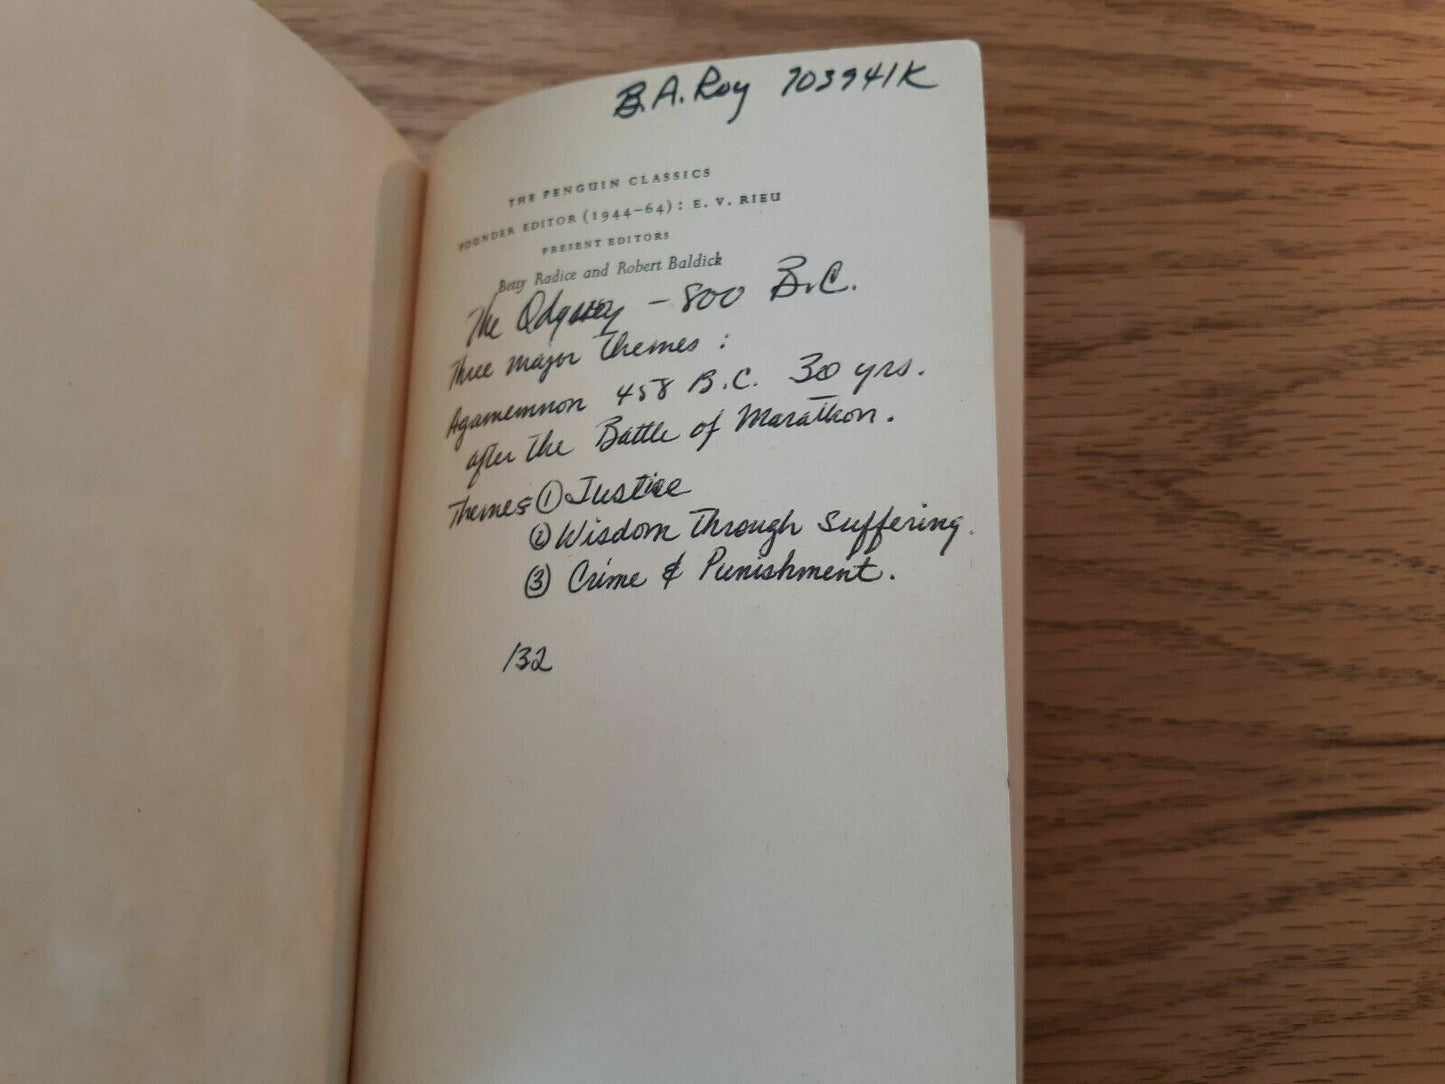 B.A. Roy 703941K
THE PENGUIN CLASSICS
FOUNDER EDITOR (1944–64): E. V. RIEU
PRESENT EDITORS
Betty Radice and Robert Baldick
The Odyssey – 800 B.C.
Three major themes :
Agamemnon 458 B.C. 30 yrs.
after the Battle of Marathon.
Themes ① Justice
② Wisdom Through Suffering.
③ Crime & Punishment.
132